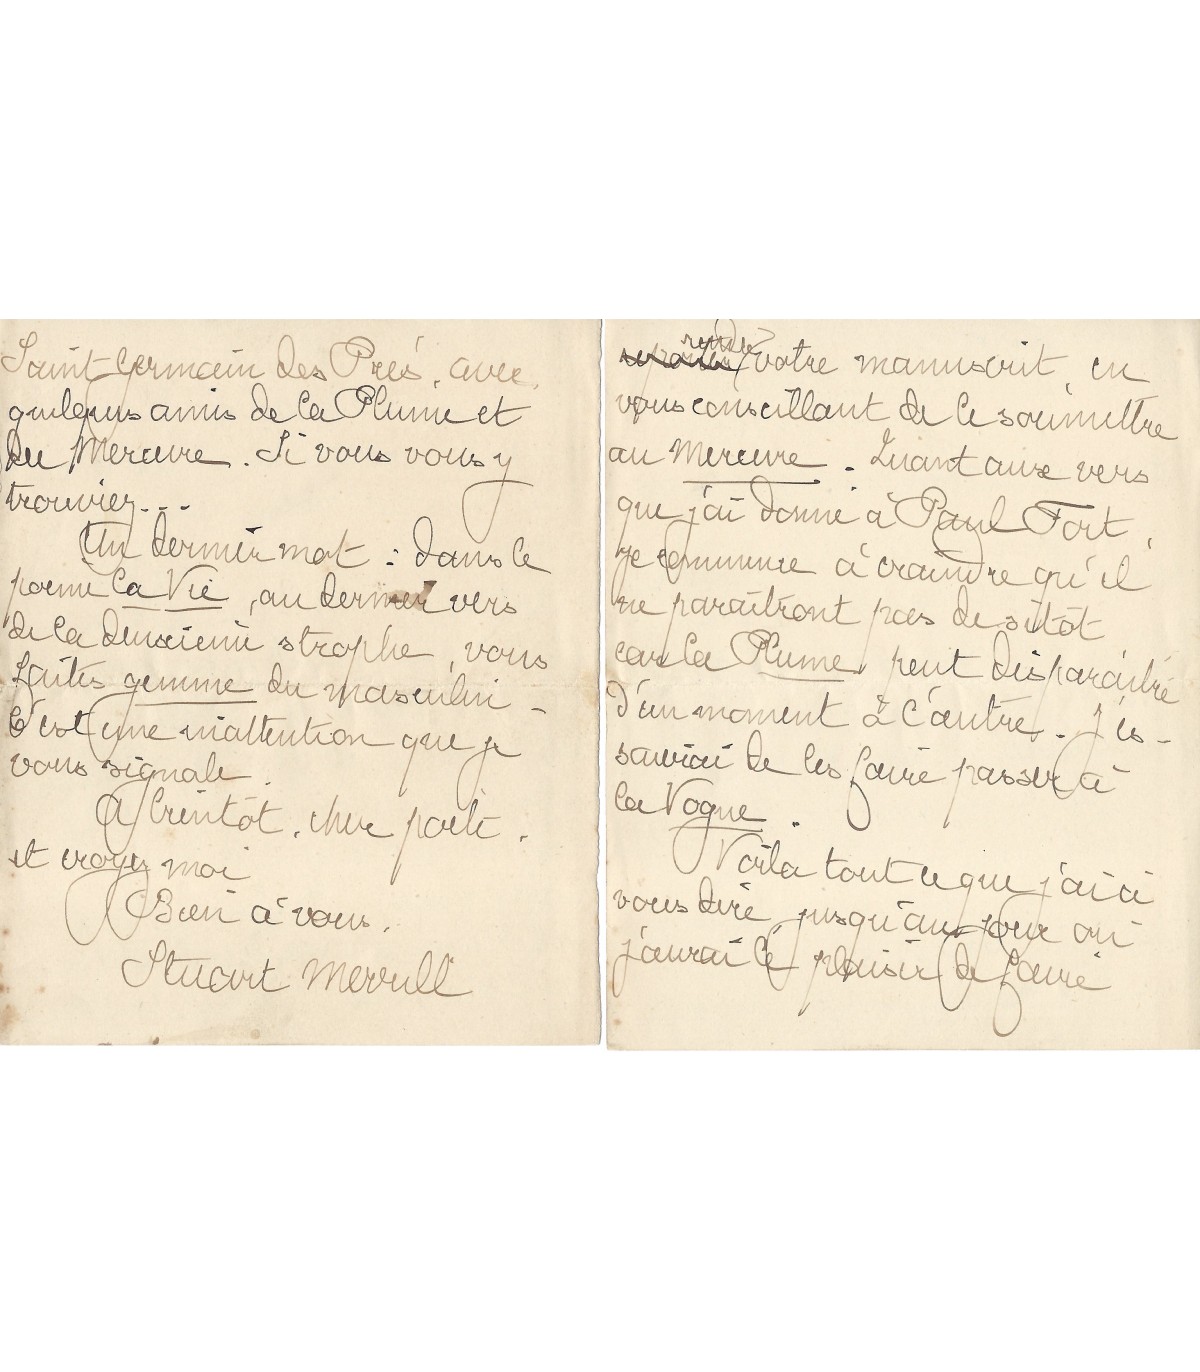 Saint Germain des Prés, avec
quelques amis de la Plume et
du Mercure. Si vous vous y
trouviez...
Un dernier mot : dans le
poème La Vie, au dernier vers
de la deuxième strophe, vous
faites gemme du masculin –
C'est une inattention que je
vous signale.
A bientôt, cher poète,
et croyez moi
Bien à vous.
Stuart Merrill
rendre
votre manuscrit, en
vous conseillant de le soumettre
au Mercure. Quant aux vers
que j'ai donné à Paul Fort,
je commence à craindre qu'il
ne paraîtront pas de sitôt
car la Plume peut disparaître
d'un moment à l'autre. J'es-
saierai de les faire passer à
la Vogue.
Voila tout ce que j'ai à
vous dire jusqu'au jour où
j'aurai le plaisir de faire